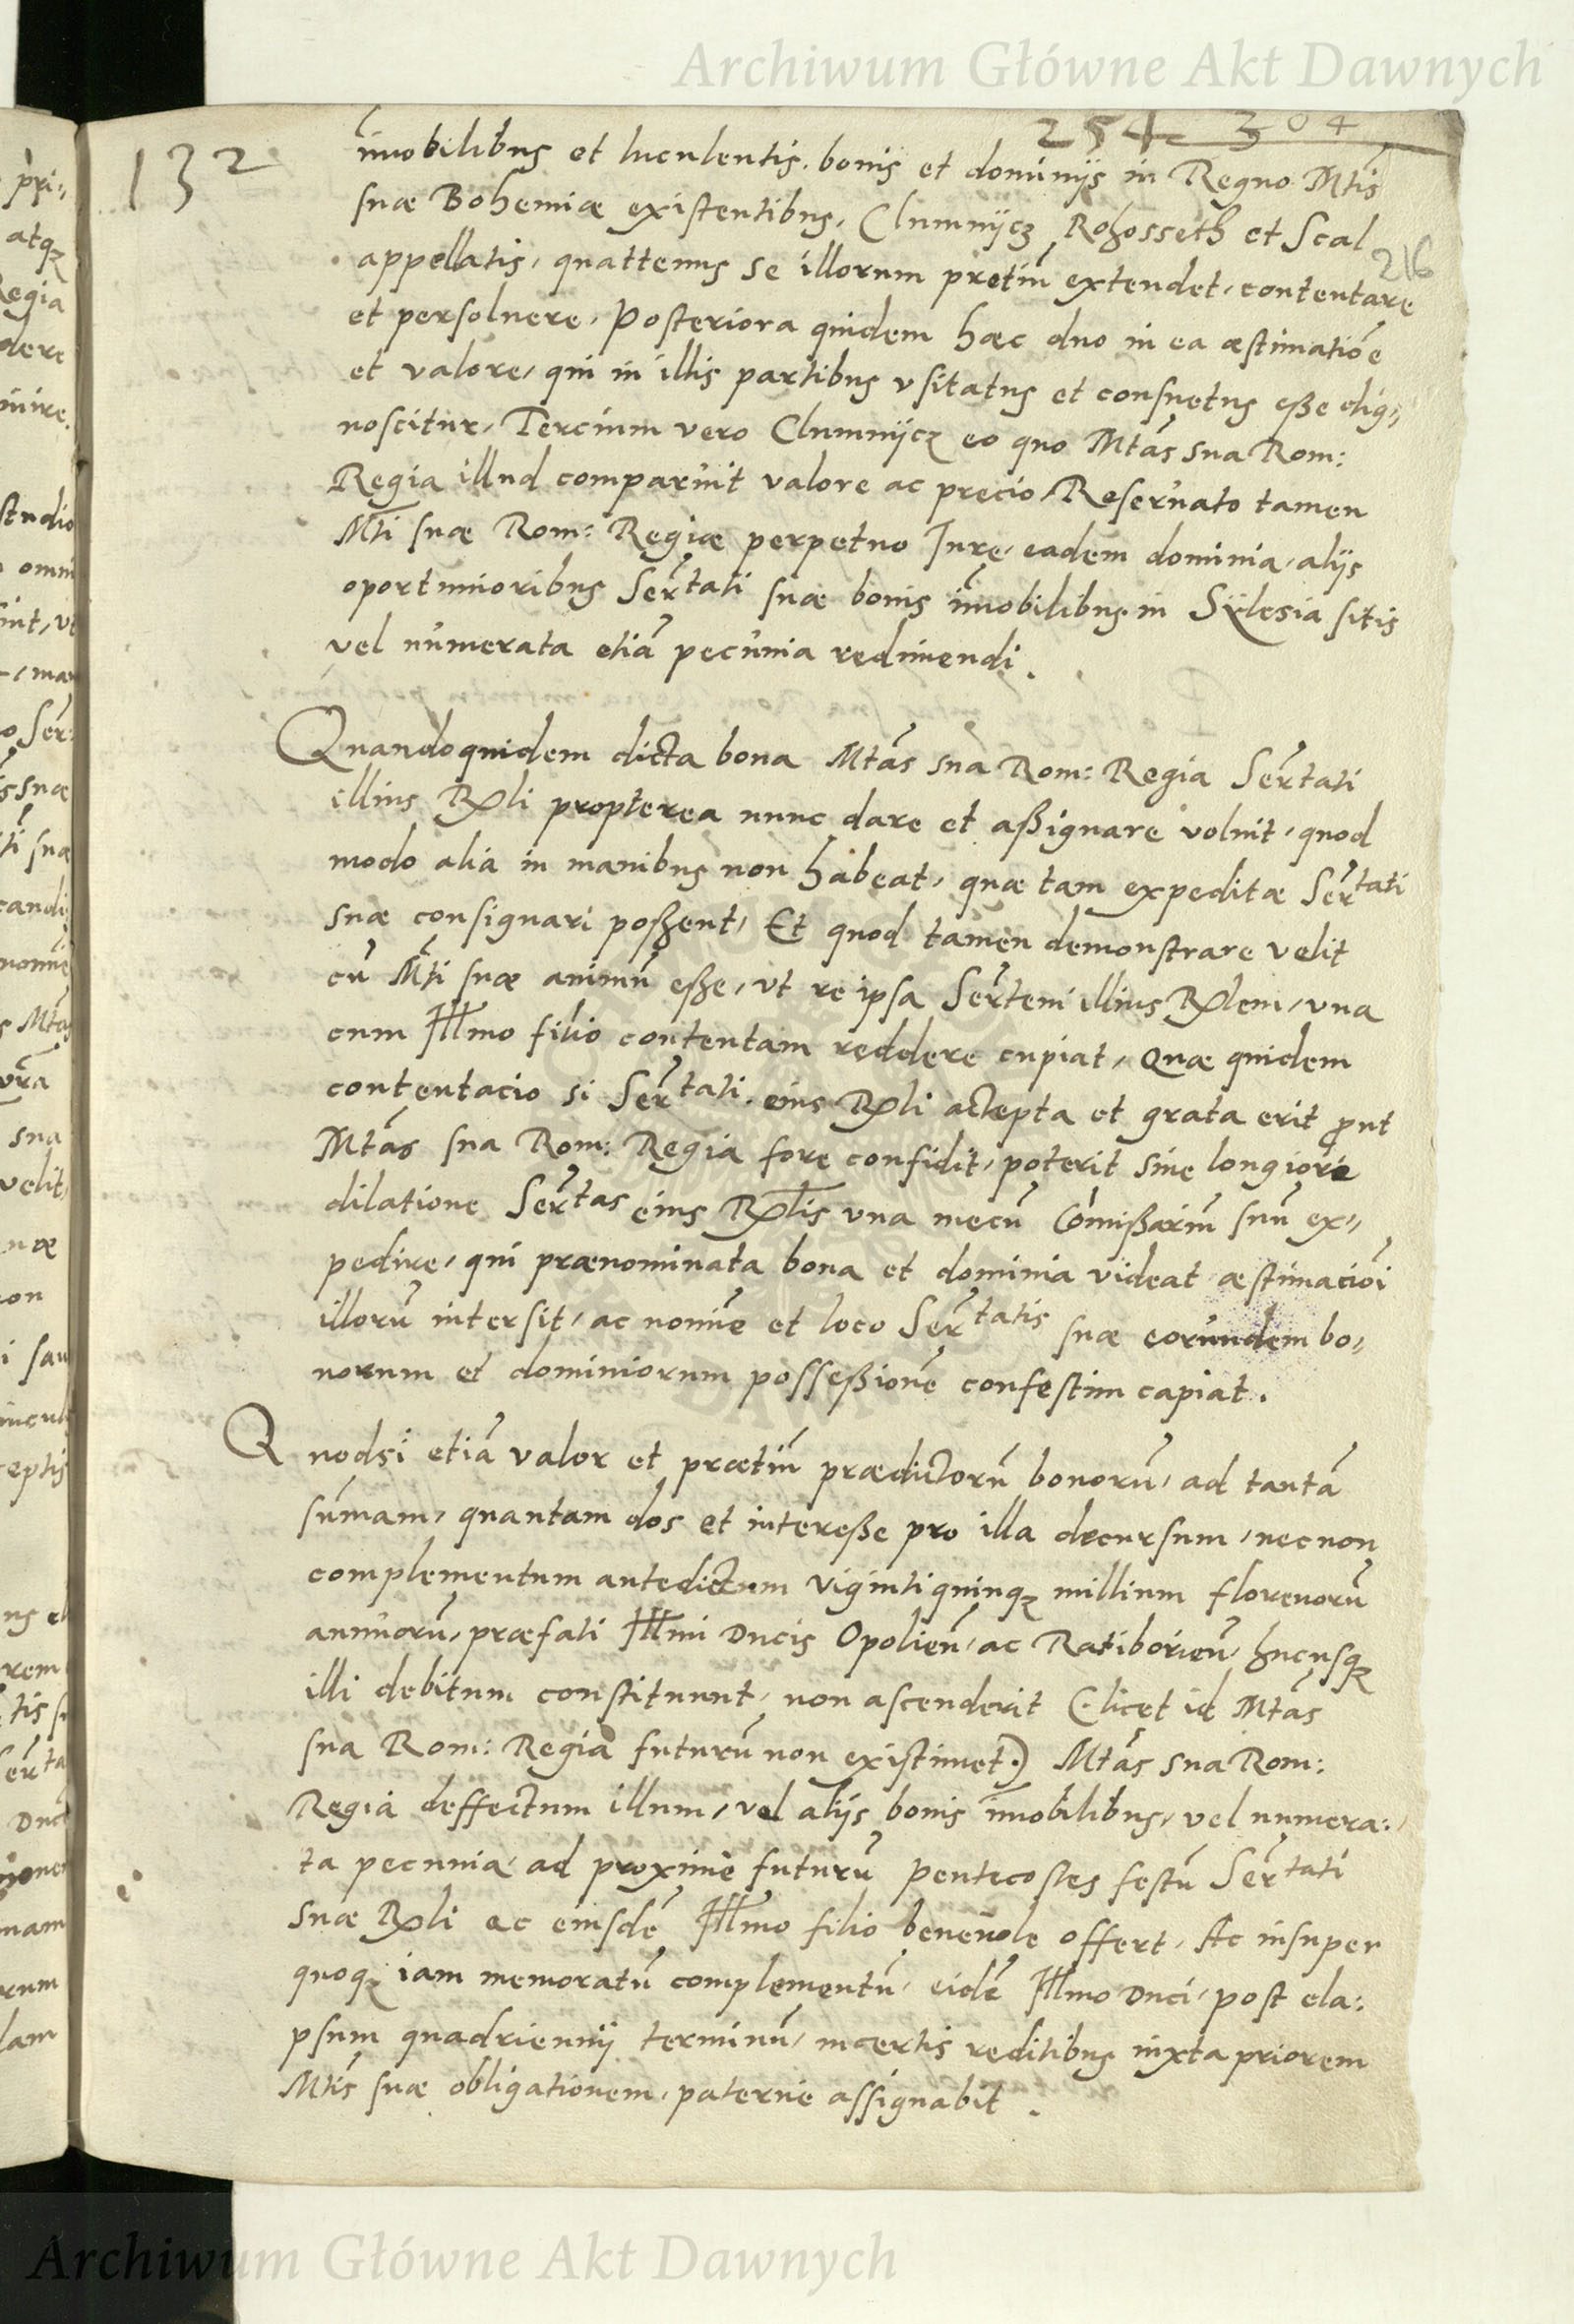 Archiwum Główne Akt Dawnych
254 304
132
im̄obilibus et luculentis bonis et dominijs in Regno Mtis
suæ Bohemiæ existentibus, Chumnijcz Rohosseth et Scal
216
appellatis, quattenus se illorum pretiũ extendet, contentare
et persoluere, Posteriora quidem hæc duo in ea æstimatiõe
et valore, qui in illis partibus vsitatus et consuetus eße dig,,
noscitur, Tercium vero Chumnijcz eo quo Mtas sua Rom:
Regia illud comparuit valore ac precio, Reseruato tamen
Mti suæ Rom: Regiæ perpetuo Iure, eadem dominia, alijs
oportunioribus Sertati suæ bonis im̄obilibus in Sÿlesia sitis
vel numerata etiã pecunia redimendi.
Quandoquidem dicta bona Mtas sua Rom: Regia Sertati
illius Rli propterea nunc dare et aßignare voluit, quod
modo alia in manibus non habeat, quæ tam expeditæ Sertati
suæ consignari poßent, Et quod tamen demonstrare velit
eũ Mti suæ animũ eße, vt re ipsa Sertem illius Rlem, vna
cum Illmo filio contentam reddere cupiat, Quæ quidem
contentacio si Sertati eius Rli accepta et grata erit ꝓut
Mtas sua Rom: Regia fore confidit, poterit sine longiore
dilatione Sertas eius Rlis vna mecũ Com̄ißariũ suũ ex,,
pedire, qui prænominata bona et dominia videat æstimacioi
illorũ intersit, ac nomĩe et loco Sertatis suæ eorundem bo,,
norum et dominiorum posseßionẽ confestim capiat.
Quodsi etiã valor et prætiũ prædictorũ bonorũ, ad tantã
sum̄am, quantam dos et intereße pro illa decursum, necnon
complementum antedictum vigintiquinqꝫ millium florenorũ
annuorũ, præfati Illmi Ducis Opolień, ac Ratiborień, hucusqꝫ
illi debitum constituunt, non ascenderit (licet id Mtas
sua Rom: Regia futurũ non existimet.) Mtas sua Rom:
Regia deffectum illum, vel alijs bonis im̄obilibus, vel numera:
ta pecunia, ad proxime futurũ Pentecostes festũ Sertati
suæ Rli ac eiusdẽ Illmo filio beneuole offert, Ac insuper
quoqꝫ iam memoratũ complementũ, eidẽ Illmo Duci, post ela:
psum quadriennij terminũ, in certis reditibus iuxta priorem
Mtis suæ obligationem, paterne assignabit.
Archiwum Główne Akt Dawnych